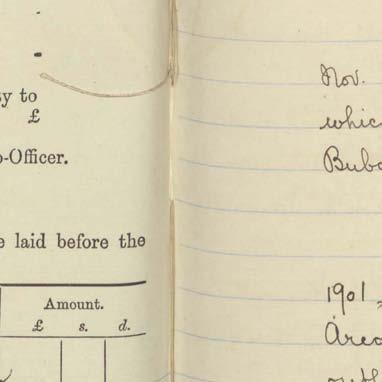 y to
£
-Officer.
e laid before the
Amount.
£ s. d.
Nov.
whic
Bubo
1901
Area